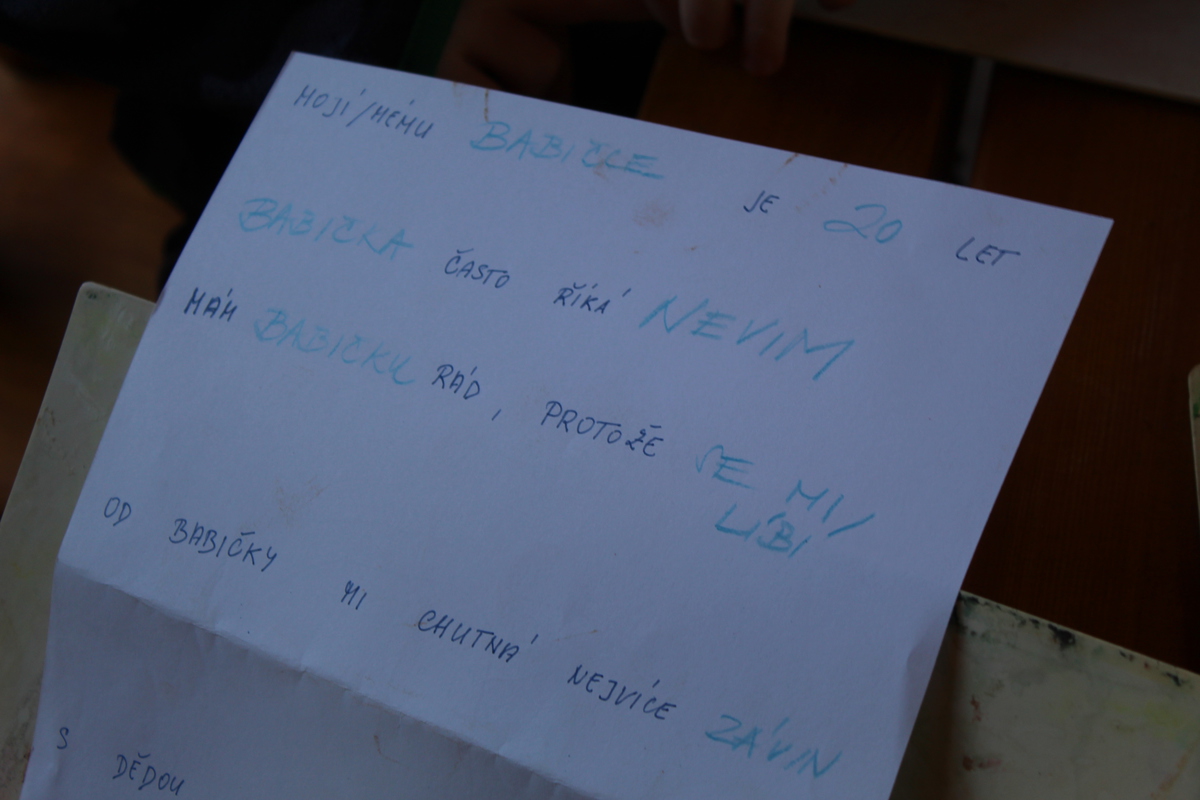 MOJÍ/MÉMU BABIČCE JE 20 LET
BABIČKA ČASTO ŘÍKÁ NEVIM
MÁM BABIČKU RÁD, PROTOŽE SE MI/
LÍBÍ
OD BABIČKY MI CHUTNÁ NEJVÍCE ZÁVIN
S DĚDOU